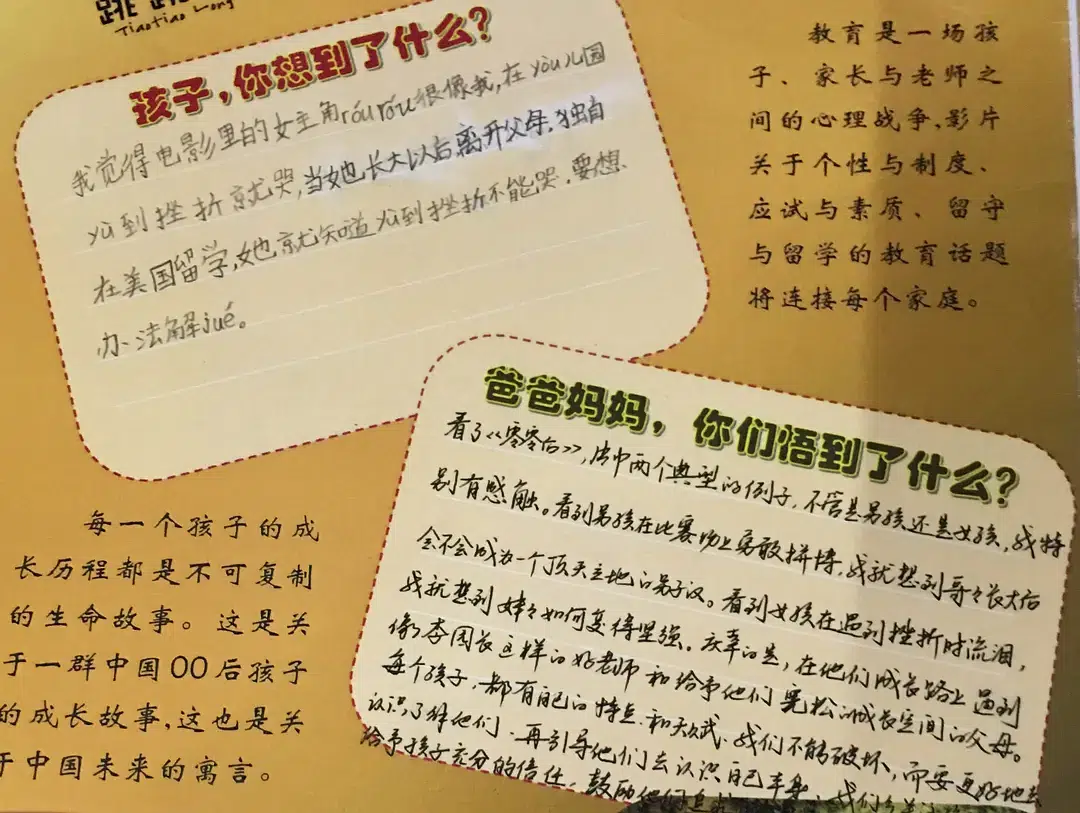 TiaoTiao Long
孩子，你想到了什么？
我觉得电影里的女主角róuróu很像我,在yòu儿园
yù到挫折就哭,当她长大以后离开父母,独自
在美国留学,她就知道yù到挫折不能哭,要想
办法解jué。
教育是一场孩
子、家长与老师之
间的心理战争,影片
关于个性与制度、
应试与素质、留守
与留学的教育话题
将连接每个家庭。
爸爸妈妈，你们悟到了什么？
看了《零零后》,片中两个典型的例子,不管是男孩还是女孩,我特
别有感触。看到男孩在比赛场上勇敢拼搏,我就想到哥々长大后
会不会成为一个顶天立地的男子汉。看到女孩在遇到挫折时流泪,
我就想到妹々如何变得坚强。庆幸的是,在他们成长路上遇到
像李园长这样的好老师和给予他们宽松的成长空间的父母。
每个孩子,都有自己的特点和天赋,我们不能破坏,而要更好地去
认识了解他们,再引导他们去认识自己
给予孩子充分的信任,鼓励他们
每一个孩子的成
长历程都是不可复制
的生命故事。这是关
于一群中国00后孩子
的成长故事,这也是关
于中国未来的寓言。